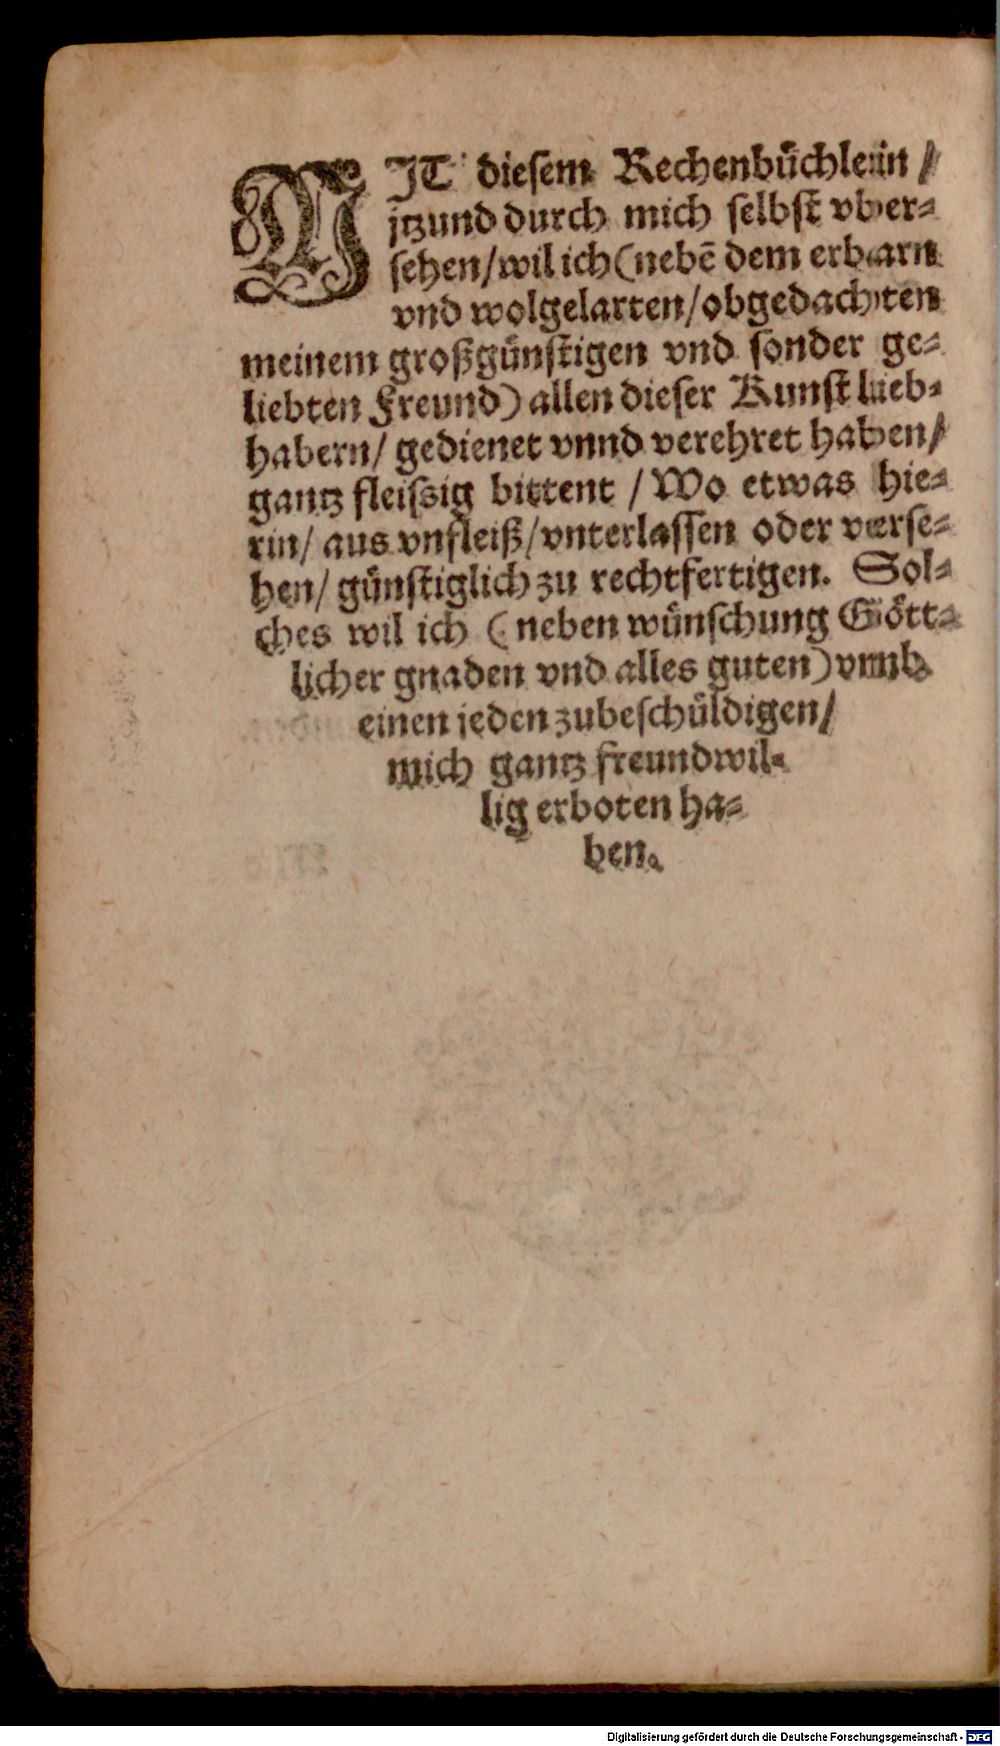 MJT diesem Rechenbüchlein /
jtzund durch mich selbst vber⸗
sehen/wil ich (nebẽ dem erbarn
vnd wolgelarten/obgedachten
meinem großgünstigen vnd sonder ge⸗
liebten Freund) allen dieser Kunst lieb⸗
habern/ gedienet vnnd verehret haben/
gantz fleissig bittent / Wo etwas hie⸗
rin/ aus vnfleiß/vnterlassen oder verse⸗
hen/ günstiglich zu rechtfertigen. Sol⸗
ches wil ich (neben wünschung Gött⸗
licher gnaden vnd alles guten) vmb
einen jeden zubeschüldigen/
mich gantz freundwil⸗
lig erboten ha⸗
ben.
Digitalisierung gefördert durch die Deutsche Forschungsgemeinschaft - DFG